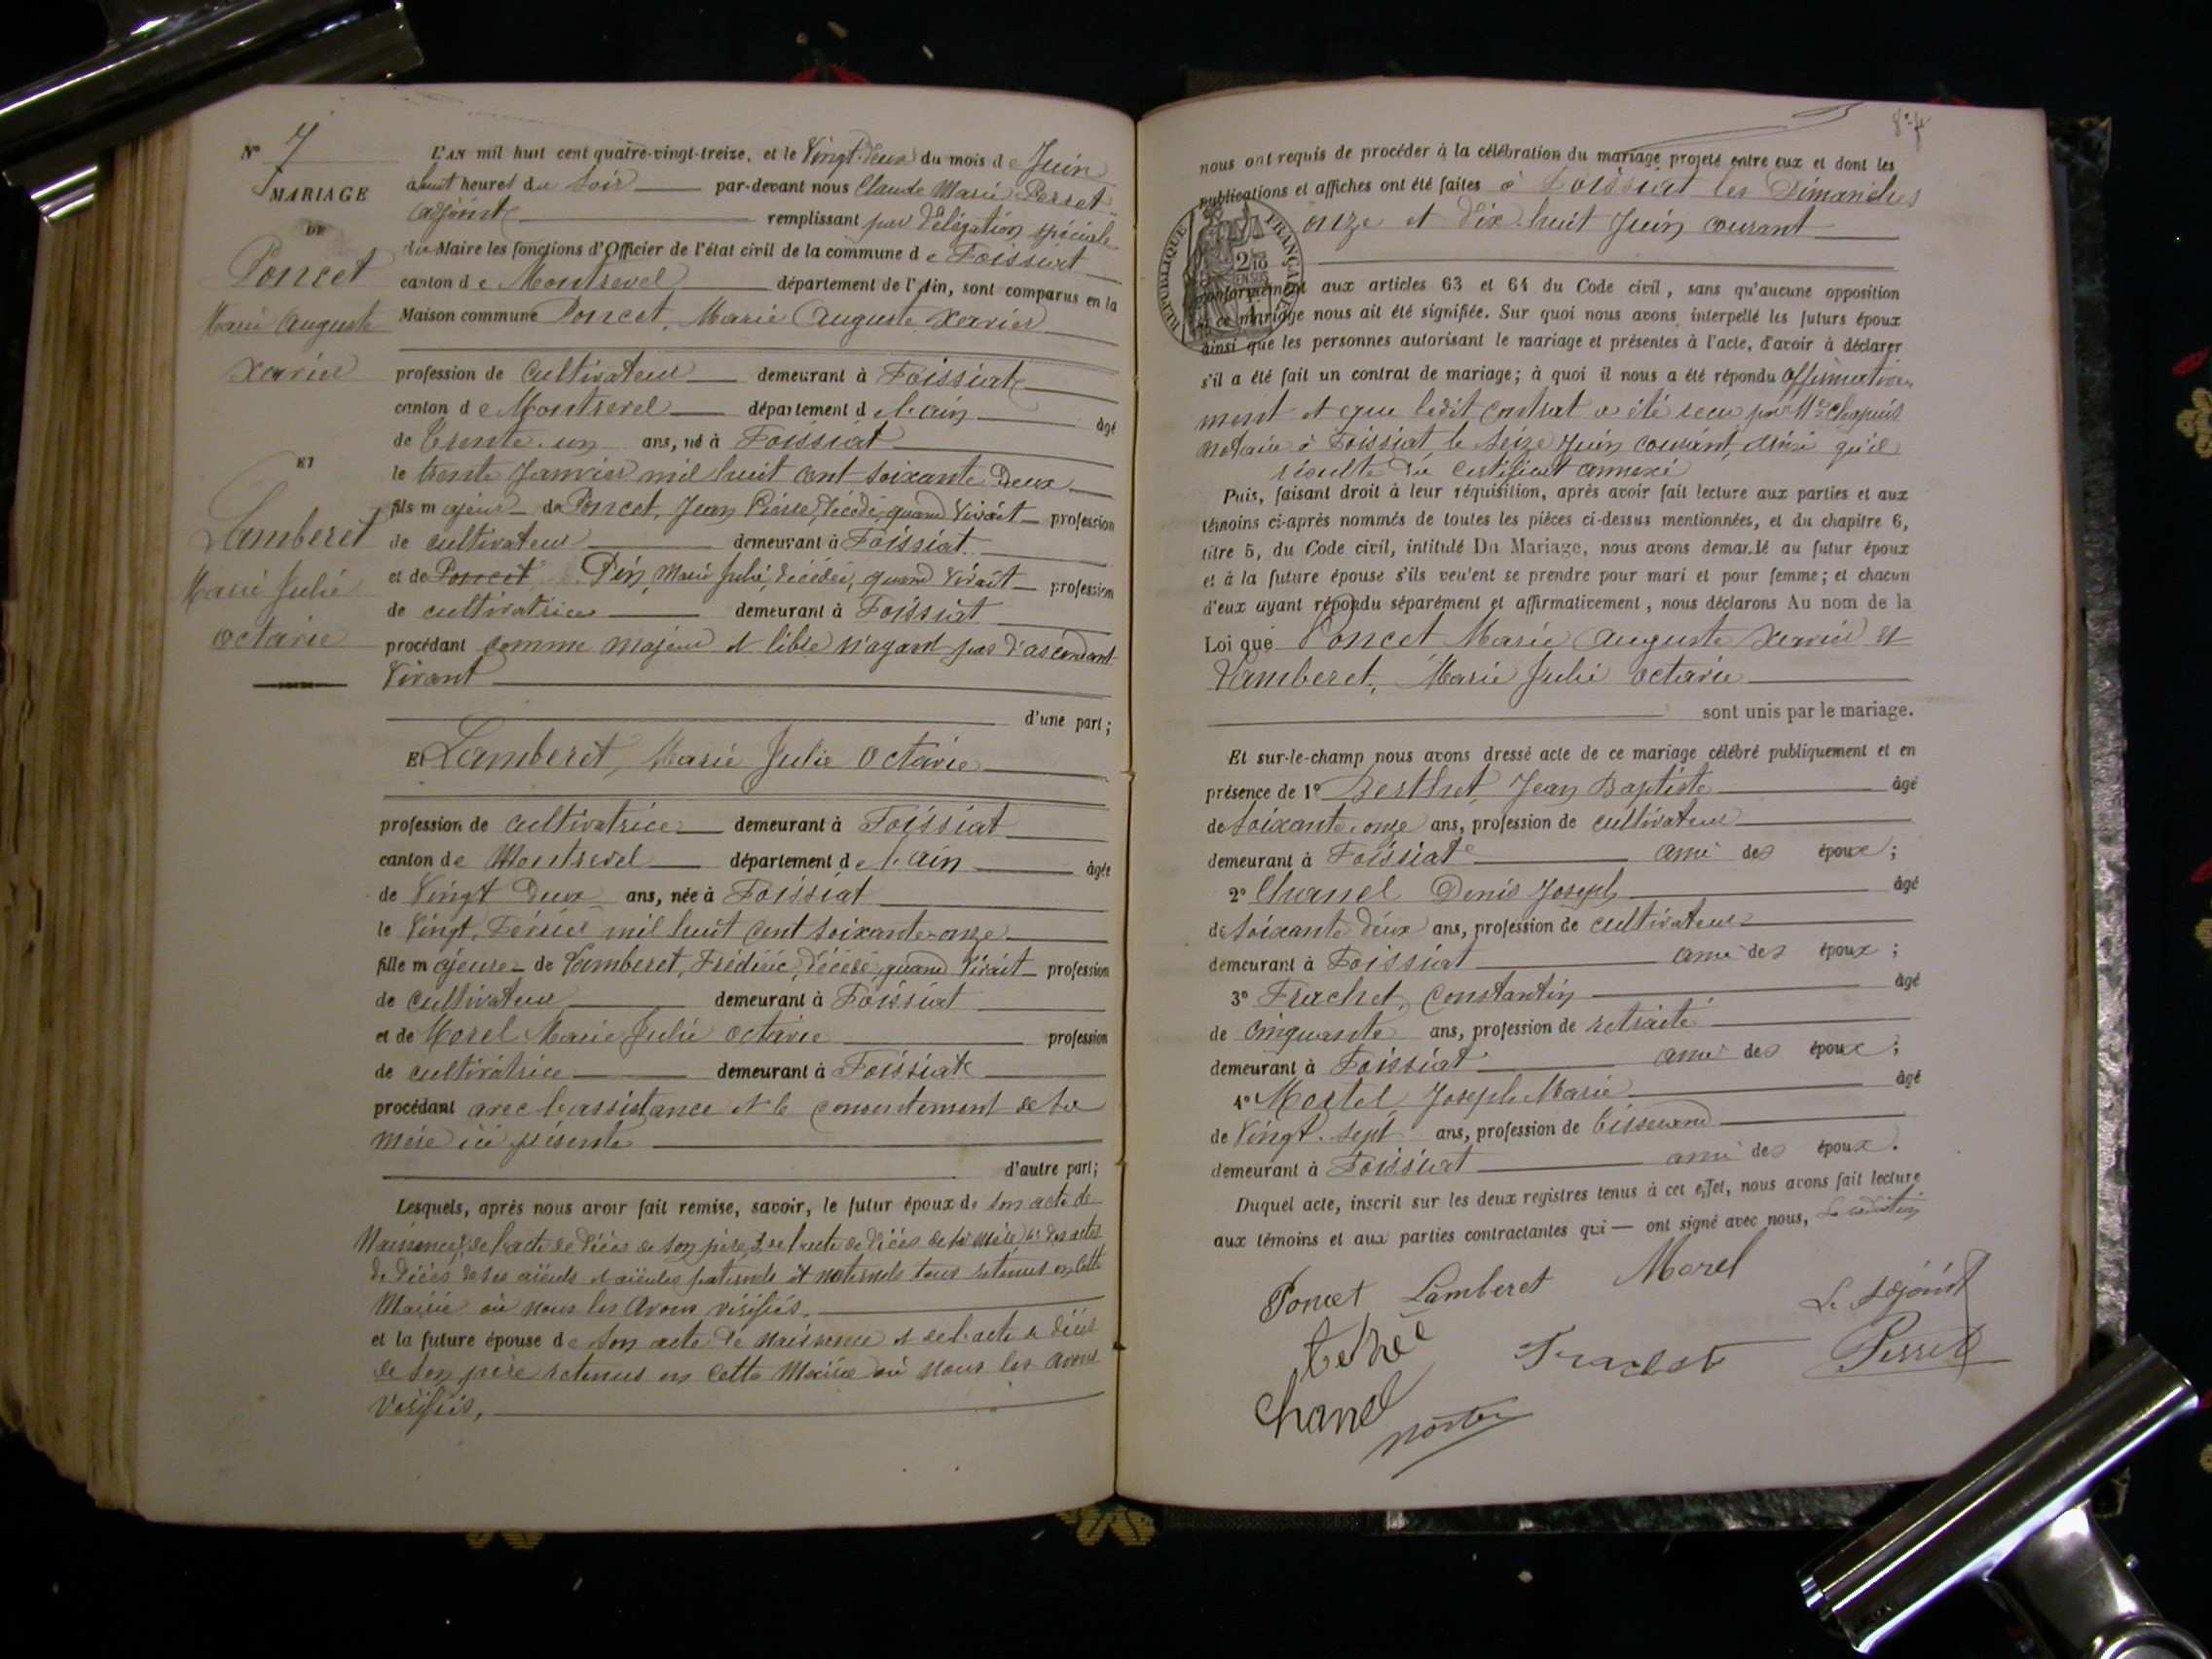 N° 7
MARIAGE
DE
Poncet
Marie Auguste
Xavier
ET
Lamberet
Marie Julie
Octavie
L'AN mil huit cent quatre-vingt-treize, et le Vingt-Deux du mois de Juin
à huit heures du Soir par-devant nous Claude Marie Perret
adjoint remplissant par Délégation spéciale
du Maire les fonctions d'Officier de l'état civil de la commune de Foissiat
canton de Montrevel département de l'Ain, sont comparus en la
Maison commune Poncet, Marie Auguste Xavier
profession de Cultivateur demeurant à Foissiat
canton de Montrevel département de l'ain âgé
de Trente-un ans, né à Foissiat
le trente Janvier mil huit cent soixante Deux
fils majeur de Poncet, Jean Pierre, Décédé, quand Vivait profession
de cultivateur demeurant à Foissiat
et de Poncet Pin, Marie Julie, Décédée, quand Vivait profession
de cultivatrice demeurant à Foissiat
procédant comme majeur et libre n'ayant pas d'ascendant
Vivant
d'une part;
Et Lamberet, Marie Julie Octavie
profession de cultivatrice demeurant à Foissiat
canton de Montrevel département de l'ain âgée
de Vingt Deux ans, née à Foissiat
le Vingt Février mil huit cent soixante-onze
fille majeure de Lamberet, Frédéric, Décédé, quand Vivait profession
de Cultivateur demeurant à Foissiat
et de Morel Marie Julie Octavie profession
de cultivatrice demeurant à Foissiat
procédant avec l'assistance et le consentement de sa
mère ici présente
d'autre part;
Lesquels, après nous avoir fait remise, savoir, le futur époux de son acte de
Naissance, de l'acte de Décès de son père, de l'acte de Décès de sa mère et des actes
de Décès de ses aïeuls et aïeules paternels et maternels tous retenus en cette
Mairie où nous les avons vérifiés.
et la future épouse de son acte de naissance et de l'acte de Décès
de son père retenus en cette Mairie où nous les avons
Vérifiés,
nous ont requis de procéder à la célébration du mariage projeté entre eux et dont les
publications et affiches ont été faites à Foissiat les Dimanches
onze et Dix-huit Juin courant
RÉPUBLIQUE FRANÇAISE
conformément aux articles 63 et 64 du Code civil, sans qu'aucune opposition
à ce mariage nous ait été signifiée. Sur quoi nous avons interpellé les futurs époux
ainsi que les personnes autorisant le mariage et présentes à l'acte, d'avoir à déclarer
s'il a été fait un contrat de mariage; à quoi il nous a été répondu Affirmative-
ment et que ledit contrat a été reçu par Me Chapuis
Notaire à Foissiat le seize Juin courant, ainsi qu'il
résulte du certificat annexé
Puis, faisant droit à leur réquisition, après avoir fait lecture aux parties et aux
témoins ci-après nommés de toutes les pièces ci-dessus mentionnées, et du chapitre 6,
titre 5, du Code civil, intitulé Du Mariage, nous avons demandé au futur époux
et à la future épouse s'ils veulent se prendre pour mari et pour femme; et chacun
d'eux ayant répondu séparément et affirmativement, nous déclarons Au nom de la
Loi que Poncet Marie Auguste Xavier et
Lamberet, Marie Julie Octavie
sont unis par le mariage.
Et sur-le-champ nous avons dressé acte de ce mariage célébré publiquement et en
présence de 1° Berthet, Jean Baptiste âgé
de Soixante-onze ans, profession de cultivateur
demeurant à Foissiat ami des époux;
2° Chanel Denis Joseph âgé
de soixante-deux ans, profession de cultivateur
demeurant à Foissiat ami des époux;
3° Frachet, Constantin âgé
de Cinquante ans, profession de retraité
demeurant à Foissiat ami des époux;
4° Mortel, Joseph Marie âgé
de Vingt-sept ans, profession de Tisserand
demeurant à Foissiat ami des époux.
Duquel acte, inscrit sur les deux registres tenus à cet effet, nous avons fait lecture
aux témoins et aux parties contractantes qui — ont signé avec nous,
Poncet Lamberet Morel
Le Adjoint
Frachet Perret
Chanel